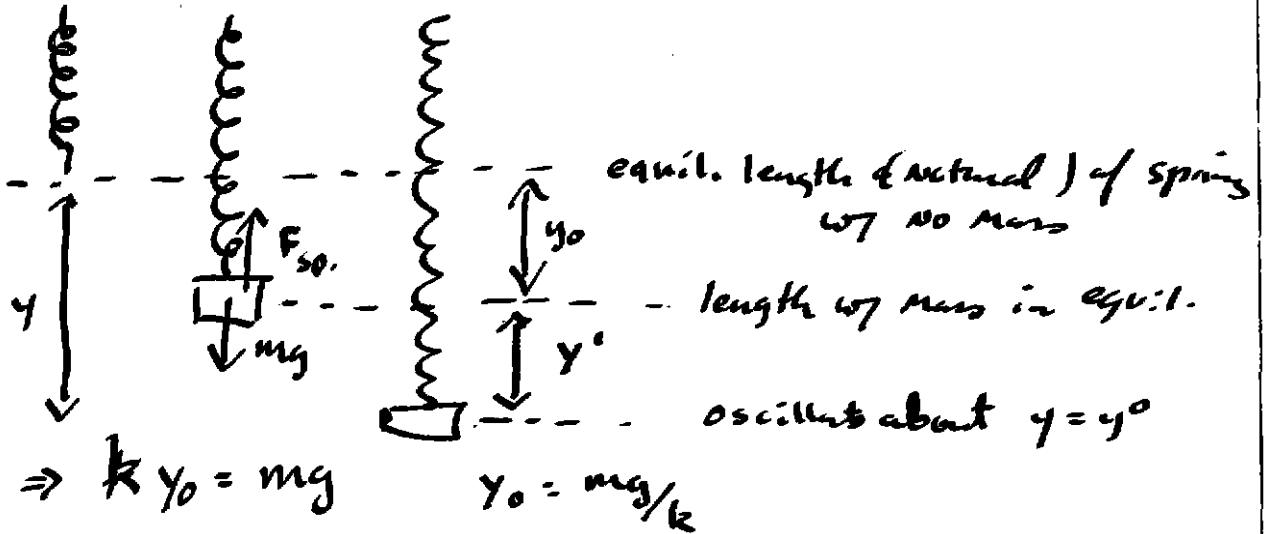 equil. length (natural) of spring
w/ no mass
F_sp.
y_0
y
length w/ mass in equil.
mg
y'
oscillats about y = y^0
⇒ k y_0 = mg    y_0 = mg/k